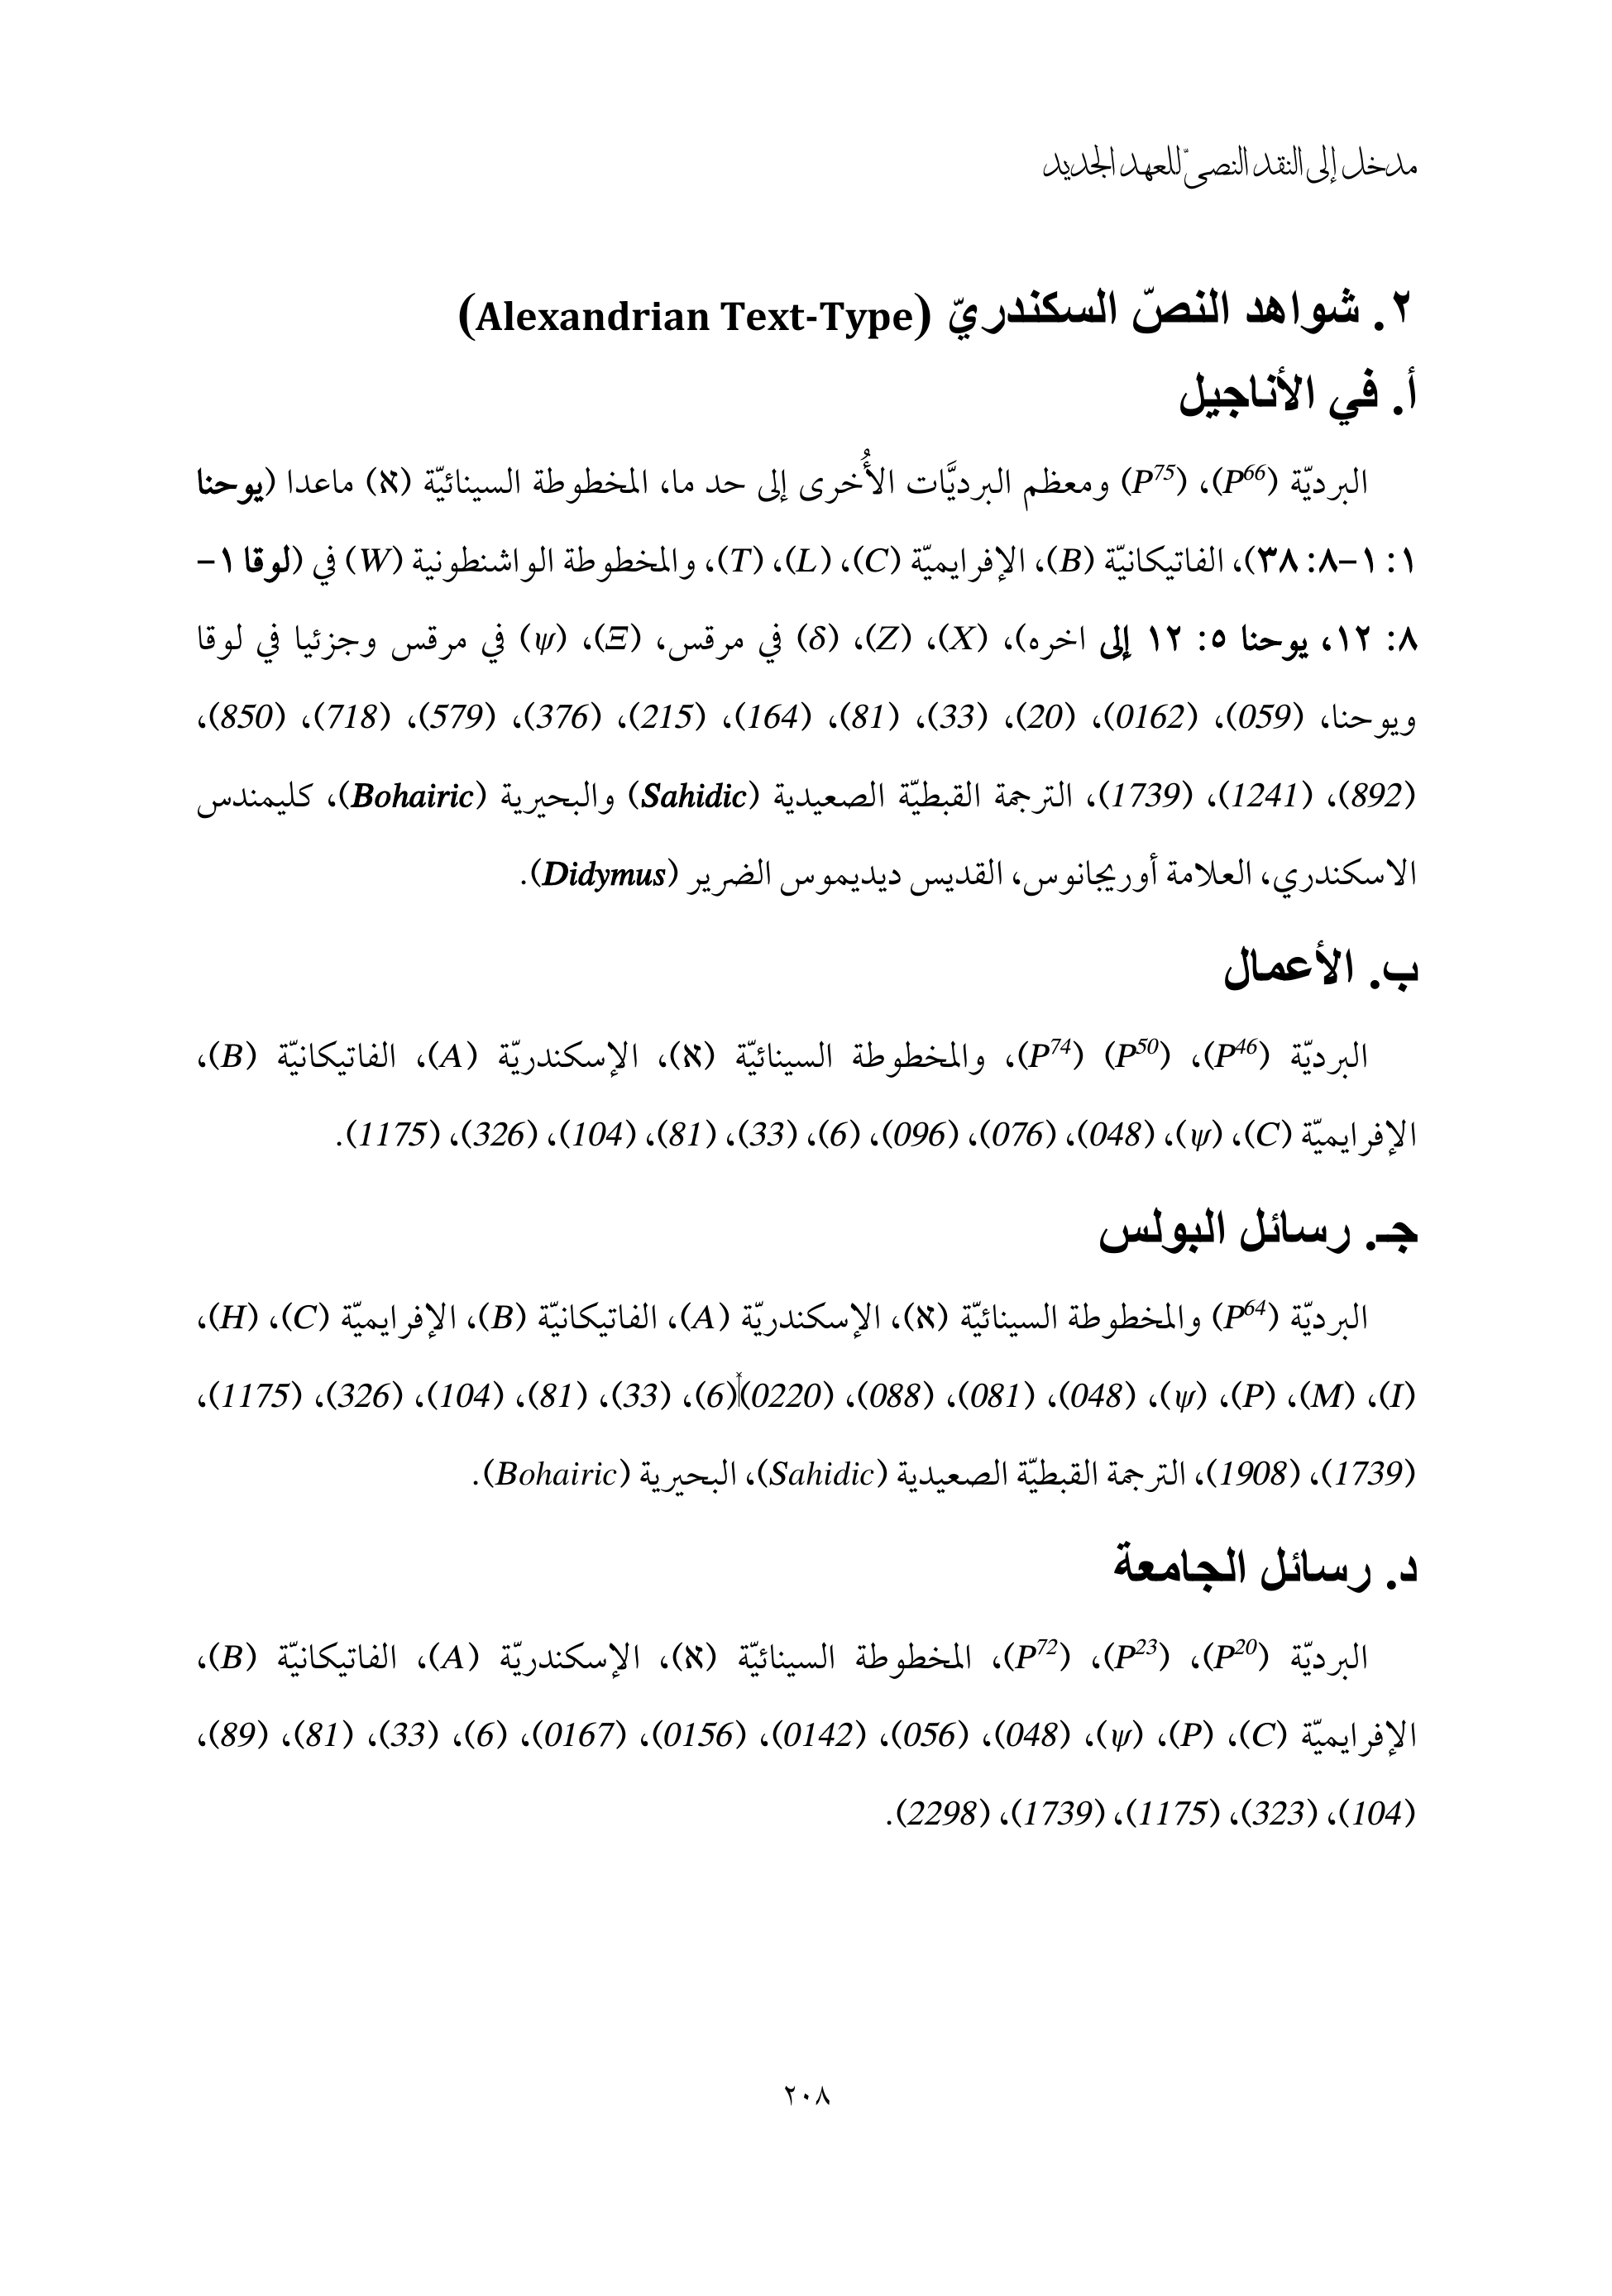 مدخل إلى النقد النصيّ للعهد الجديد
٢. شواهد النصّ السكندريّ (Alexandrian Text-Type)
أ. في الأناجيل
البرديّة (P⁶⁶)، (P⁷⁵) ومعظم البرديَّات الأُخرى إلى حد ما، المخطوطة السينائيّة (ℵ) ماعدا (يوحنا
١: ١–٨: ٣٨)، الفاتيكانيّة (B)، الإفرايميّة (C)، (L)، (T)، والمخطوطة الواشنطونية (W) في (لوقا ١–
٨: ١٢، يوحنا ٥: ١٢ إلى اخره)، (X)، (Z)، (δ) في مرقس، (Ξ)، (ψ) في مرقس وجزئيا في لوقا
ويوحنا، (059)، (0162)، (20)، (33)، (81)، (164)، (215)، (376)، (579)، (718)، (850)،
(892)، (1241)، (1739)، الترجمة القبطيّة الصعيدية (Sahidic) والبحيرية (Bohairic)، كليمندس
الاسكندري، العلامة أوريجانوس، القديس ديديموس الضرير (Didymus).
ب. الأعمال
البرديّة (P⁴⁶)، (P⁵⁰) (P⁷⁴)، والمخطوطة السينائيّة (ℵ)، الإسكندريّة (A)، الفاتيكانيّة (B)،
الإفرايميّة (C)، (ψ)، (048)، (076)، (096)، (6)، (33)، (81)، (104)، (326)، (1175).
جـ. رسائل البولس
البرديّة (P⁶⁴) والمخطوطة السينائيّة (ℵ)، الإسكندريّة (A)، الفاتيكانيّة (B)، الإفرايميّة (C)، (H)،
(I)، (M)، (P)، (ψ)، (048)، (081)، (088)، (0220)(6)، (33)، (81)، (104)، (326)، (1175)،
(1739)، (1908)، الترجمة القبطيّة الصعيدية (Sahidic)، البحيرية (Bohairic).
د. رسائل الجامعة
البرديّة (P²⁰)، (P²³)، (P⁷²)، المخطوطة السينائيّة (ℵ)، الإسكندريّة (A)، الفاتيكانيّة (B)،
الإفرايميّة (C)، (P)، (ψ)، (048)، (056)، (0142)، (0156)، (0167)، (6)، (33)، (81)، (89)،
(104)، (323)، (1175)، (1739)، (2298).
٢٠٨